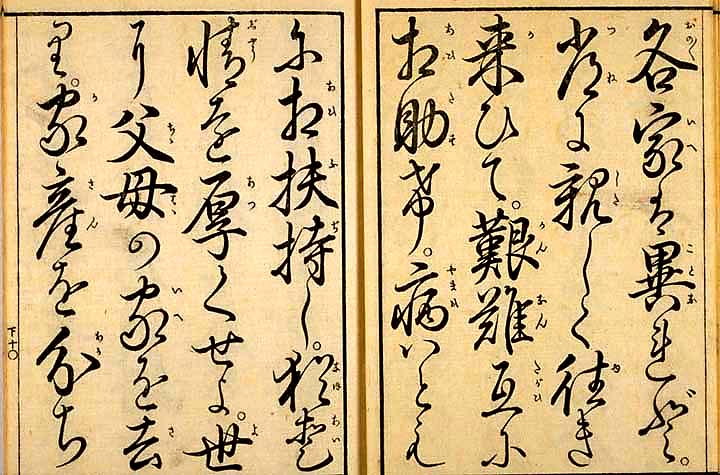 各家は異れども。
常に親しく往き
来ひて。艱難互に
相助け。病ハとも
に相扶持し。猶愛
情を厚くせよ。世
に父母の家を去
り。家産を分ち
下十〇